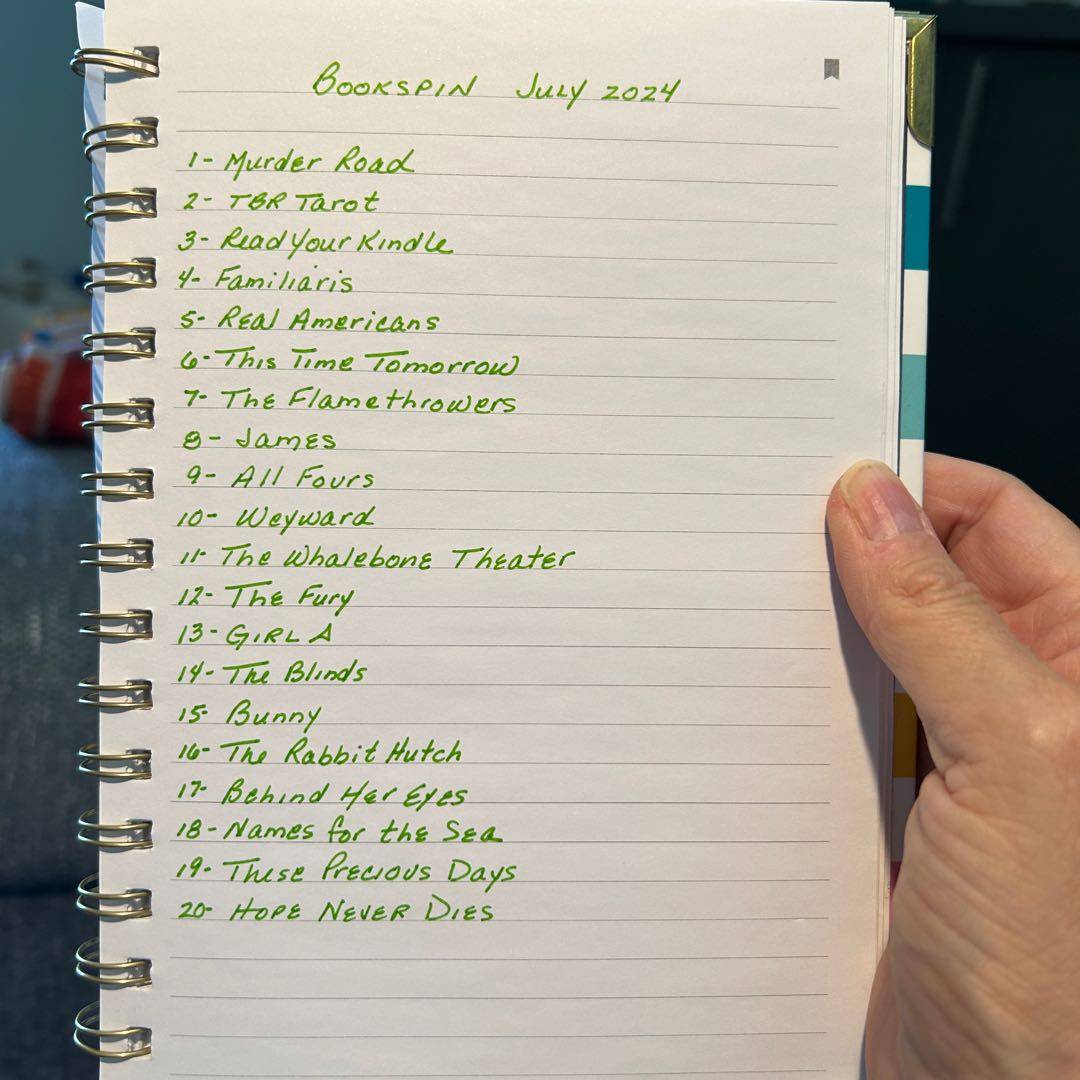 Bookspin July 2024
1- Murder Road
2- TBR Tarot
3- Read Your Kindle
4- Familiaris
5- Real Americans
6- This Time Tomorrow
7- The Flamethrowers
8- James
9- All Fours
10- Weyward
11- The Whalebone Theater
12- The Fury
13- Girl A
14- The Blinds
15- Bunny
16- The Rabbit Hutch
17- Behind Her Eyes
18- Names for the Sea
19- These Precious Days
20- Hope Never Dies